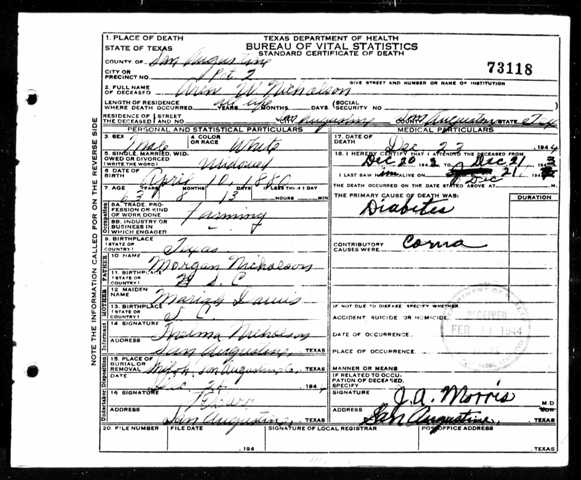 TEXAS DEPARTMENT OF HEALTH
BUREAU OF VITAL STATISTICS
STANDARD CERTIFICATE OF DEATH
73118
NOTE THE INFORMATION CALLED FOR ON THE REVERSE SIDE
1. PLACE OF DEATH
STATE OF TEXAS
COUNTY OF San Augustine
CITY OR PRECINCT NO. Pct 2
GIVE STREET AND NUMBER OR NAME OF INSTITUTION
2. FULL NAME OF DECEASED W. Nicholson
LENGTH OF RESIDENCE WHERE DEATH OCCURRED YEARS MONTHS DAYS (SOCIAL SECURITY NO.
RESIDENCE OF THE DECEASED STREET AND NO. San Augustine San Augustine STATE Tex
PERSONAL AND STATISTICAL PARTICULARS
3 SEX Male
4 COLOR OR RACE White
5 SINGLE, MARRIED, WIDOWED OR DIVORCED (WRITE THE WORD) Widowed
6 DATE OF BIRTH April 10, 1880
7 AGE 63 8 13 IF LESS THAN 1 DAY HOURS MIN
Occupation
8A TRADE, PROFESSION OR KIND OF WORK DONE Farming
8B. INDUSTRY OR BUSINESS IN WHICH ENGAGED
9. BIRTHPLACE (STATE OR COUNTRY) Texas
FATHER
10 NAME Morgan Nicholson
11. BIRTHPLACE (STATE OR COUNTRY) S. C.
MOTHER
12 MAIDEN NAME Davis
13. BIRTHPLACE (STATE OR COUNTRY) S. C.
Informant
14 SIGNATURE Nicholson
ADDRESS San Augustine, TEXAS
Disposition
15. PLACE OF BURIAL OR REMOVAL San Augustine, TEXAS
DATE Dec 194
16 SIGNATURE
ADDRESS San Augustine, TEXAS
20 FILE NUMBER FILE DATE , 194
SIGNATURE OF LOCAL REGISTRAR
POST OFFICE ADDRESS
TEXAS
MEDICAL PARTICULARS
17. DATE OF DEATH Dec 23 194
18. I HEREBY CERTIFY THAT I ATTENDED THE DECEASED FROM
Dec 20 194 Dec 21, 194
I LAST SAW ALIVE ON Dec 21, 194
THE DEATH OCCURRED ON THE DATE STATED ABOVE AT M.
THE PRIMARY CAUSE OF DEATH WAS: DURATION
Diabetes
CONTRIBUTORY CAUSES WERE: Coma
IF NOT DUE TO DISEASE SPECIFY WHETHER
ACCIDENT SUICIDE OR HOMICIDE.
DATE OF OCCURRENCE.
PLACE OF OCCURRENCE.
MANNER OR MEANS
IF RELATED TO OCCUPATION OF DECEASED, SPECIFY
SIGNATURE J. A. Morris M D
ADDRESS San Augustine, TEXAS
RECEIVED
FEB 1944